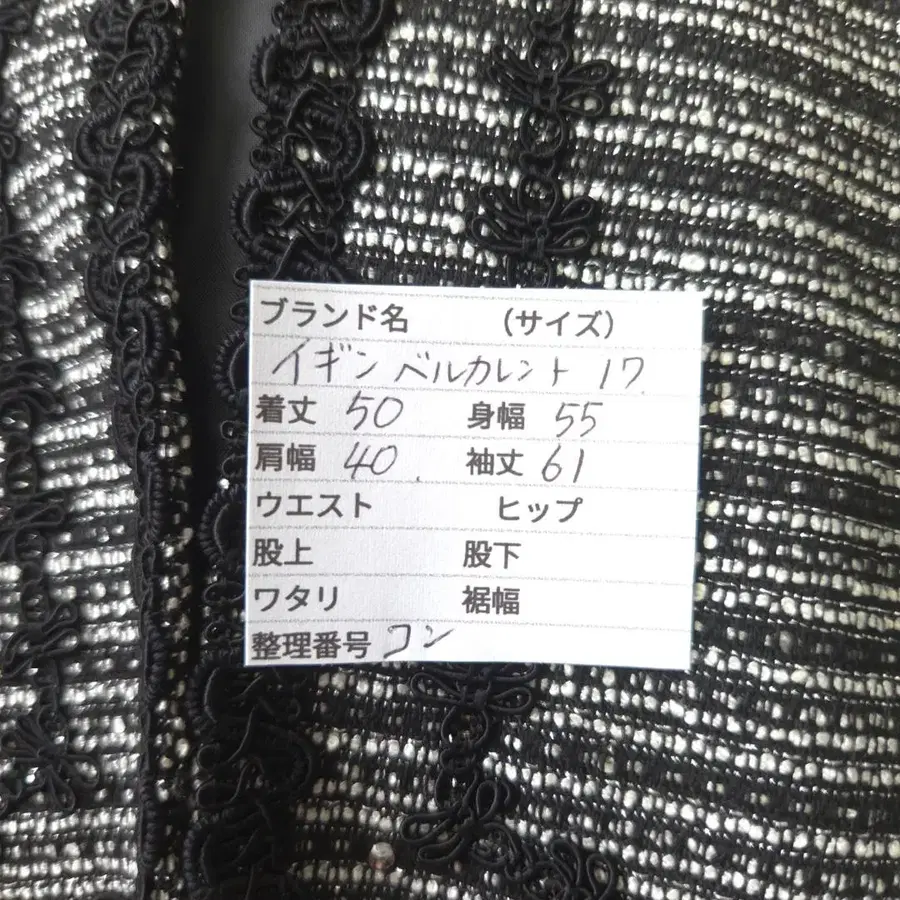 ブランド名 （サイズ）
イギン ベルカレント 17
着丈 50 身幅 55
肩幅 40 袖丈 61
ウエスト ヒップ
股上 股下
ワタリ 裾幅
整理番号 コン